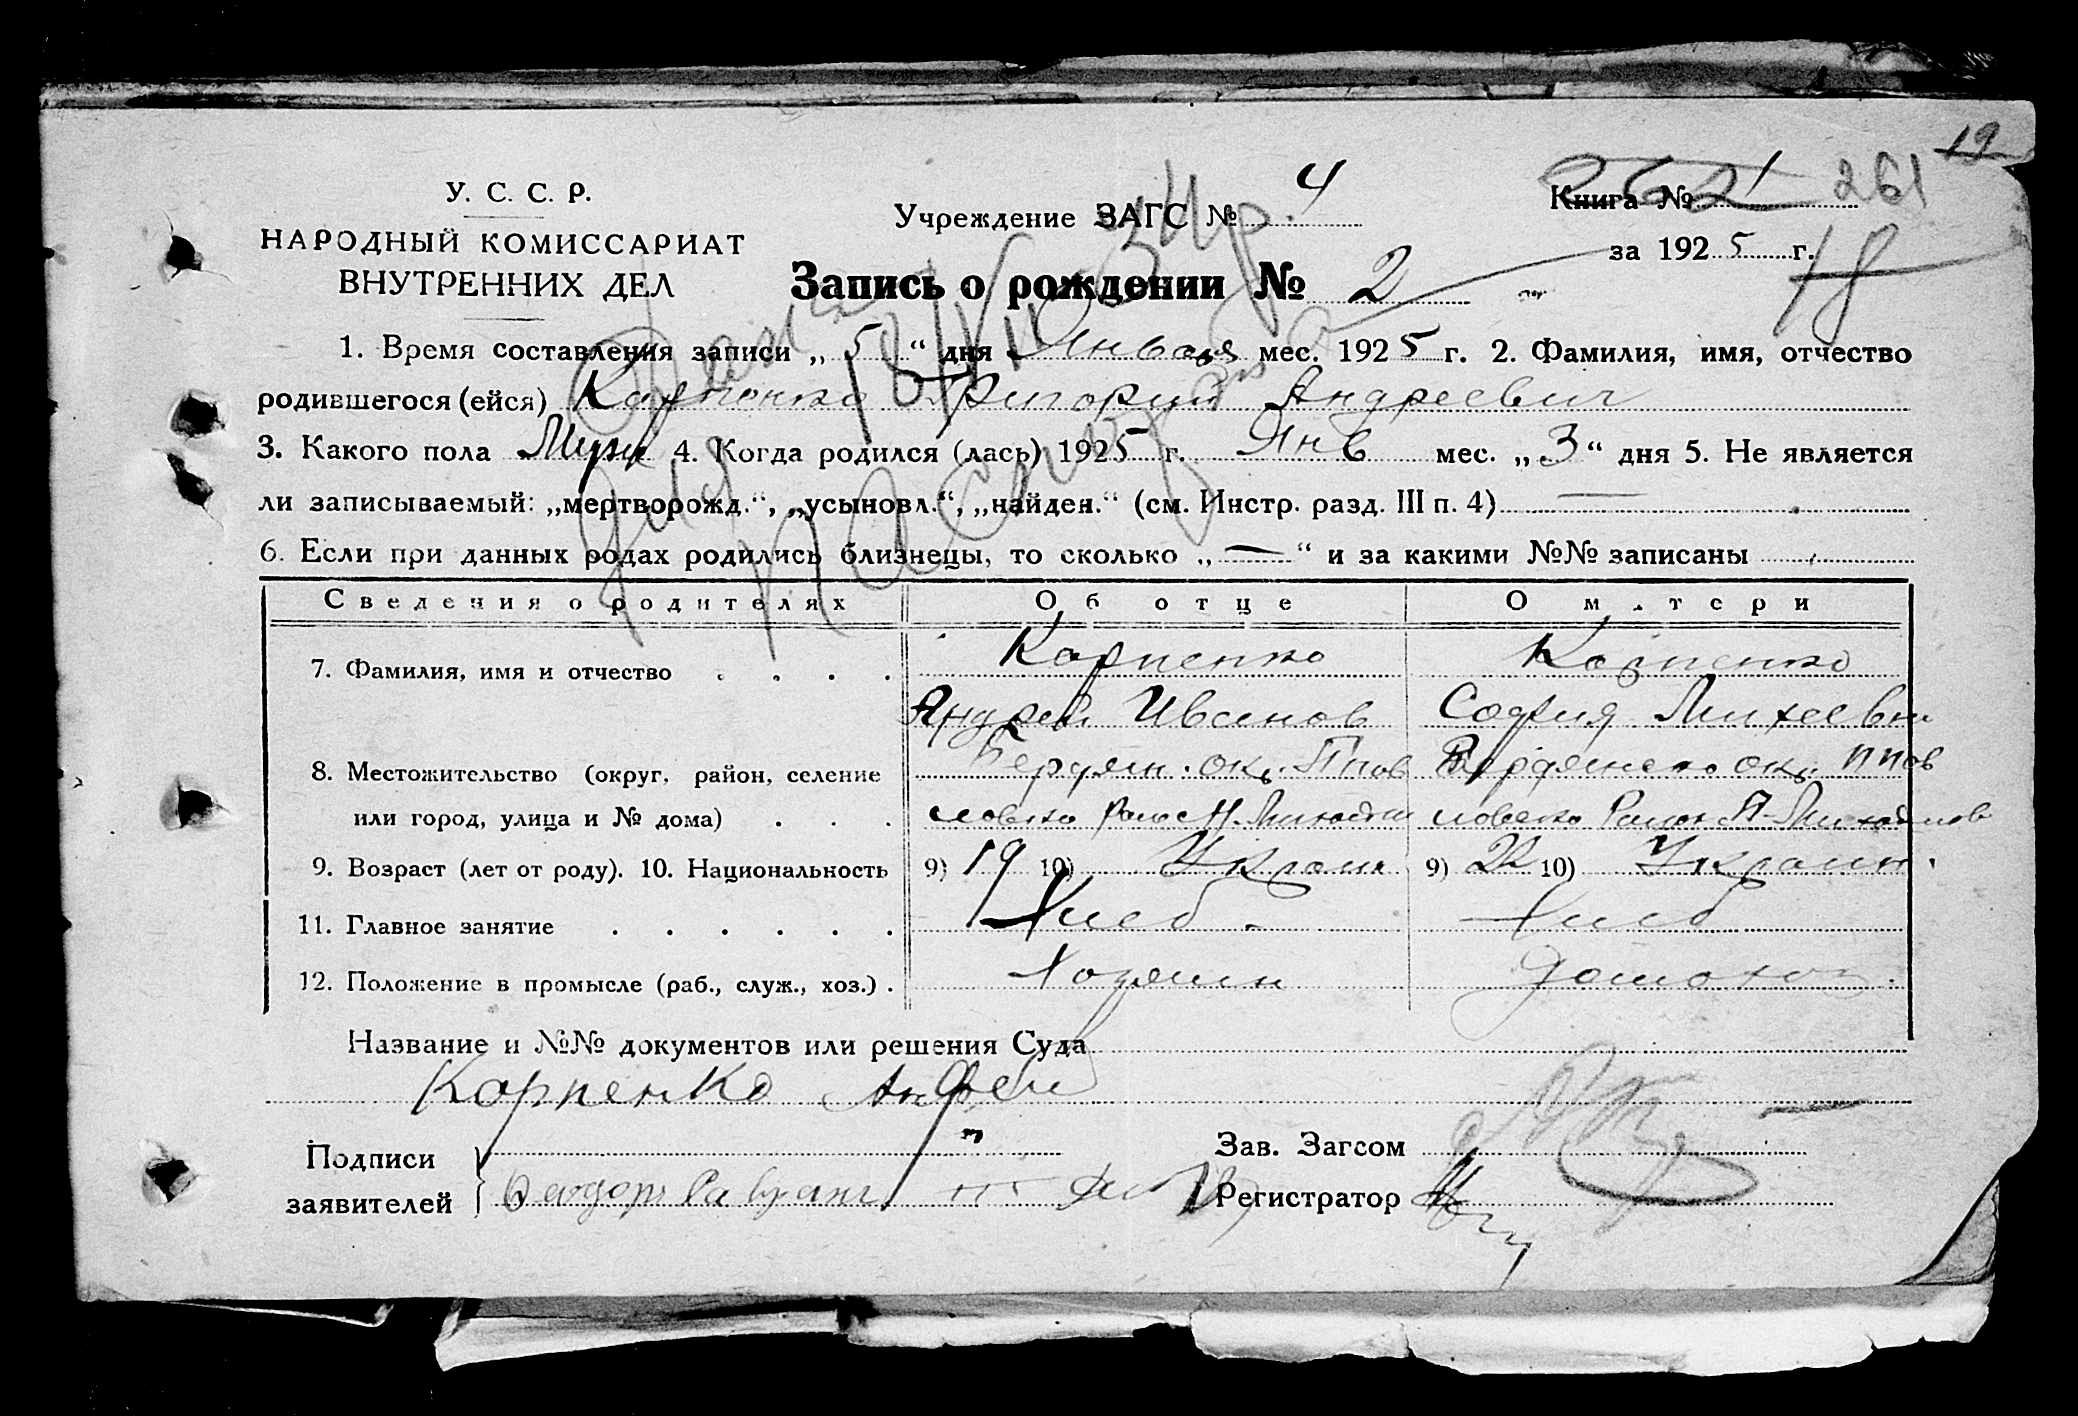 19
У. С. С. Р.
НАРОДНЫЙ КОМИССАРИАТ
ВНУТРЕННИХ ДЕЛ
Учреждение ЗАГС № 4
Книга № 1 261
за 1925 г.
18
Запись о рождении № 2
1. Время составления записи „5“ дня Января мес. 1925 г. 2. Фамилия, имя, отчество
родившегося (ейся) Карпенко Григорий Андреевич
3. Какого пола Муж 4. Когда родился (лась) 1925 г. Янв мес. „3“ дня 5. Не является
ли записываемый: „мертворожд.“, „усыновл.“, „найден.“ (см. Инстр. разд. III п. 4) —
6. Если при данных родах родились близнецы, то сколько „—“ и за какими №№ записаны
Сведения о родителях Об отце О матери
7. Фамилия, имя и отчество . . . . Карпенко Карпенко
Андрей Иванов София Михеевна
8. Местожительство (округ, район, селение Бердян. окр. Бердянского окр.
или город, улица и № дома) . . .
9. Возраст (лет от роду). 10. Национальность 9) 19 10) Украин 9) 22 10) Украин.
11. Главное занятие . . . . . . Хлеб. Хлеб
12. Положение в промысле (раб., служ., хоз.) . Хозяин домохоз.
Название и №№ документов или решения Суда
Карпенко Андрей
Подписи
заявителей
Зав. Загсом
Регистратор